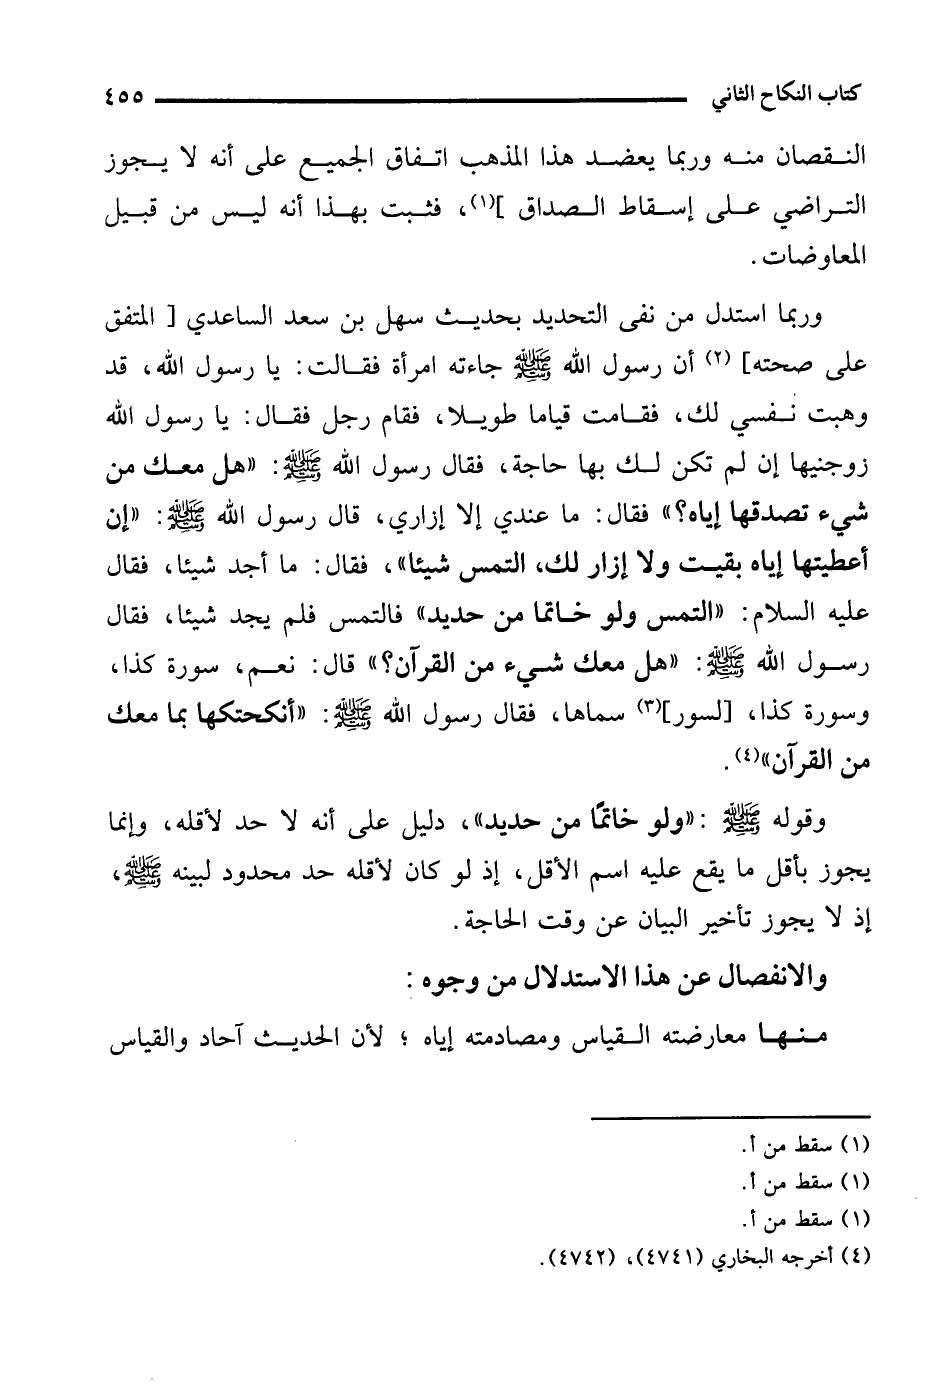 كتاب النكاح الثاني ٤٥٥
النقصان منه وربما يعضد هذا المذهب اتفاق الجميع على أنه لا يجوز
التراضي على إسقاط الصداق ](١)، فثبت بهذا أنه ليس من قبيل
المعاوضات .
وربما استدل من نفى التحديد بحديث سهل بن سعد الساعدي [ المتفق
على صحته] (٢) أن رسول الله ﷺ جاءته امرأة فقالت: يا رسول الله، قد
وهبت نفسي لك، فقامت قياما طويلا، فقام رجل فقال: يا رسول الله
زوجنيها إن لم تكن لك بها حاجة، فقال رسول الله ﷺ: «هل معك من
شيء تصدقها إياه؟» فقال: ما عندي إلا إزاري، قال رسول الله ﷺ: «إن
أعطيتها إياه بقيت ولا إزار لك، التمس شيئا»، فقال: ما أجد شيئا، فقال
عليه السلام: «التمس ولو خاتما من حديد» فالتمس فلم يجد شيئا، فقال
رسول الله ﷺ: «هل معك شيء من القرآن؟» قال: نعم، سورة كذا،
وسورة كذا، [لسور](٣) سماها، فقال رسول الله ﷺ: «أنكحتكها بما معك
من القرآن»(٤) .
وقوله ﷺ :«ولو خاتمًا من حديد»، دليل على أنه لا حد لأقله، وإنما
يجوز بأقل ما يقع عليه اسم الأقل، إذ لو كان لأقله حد محدود لبينه ﷺ،
إذ لا يجوز تأخير البيان عن وقت الحاجة.
والانفصال عن هذا الاستدلال من وجوه :
منها معارضته القياس ومصادمته إياه ؛ لأن الحديث آحاد والقياس
(١) سقط من أ.
(١) سقط من أ.
(١) سقط من أ.
(٤) أخرجه البخاري (٤٧٤١)، (٤٧٤٢).